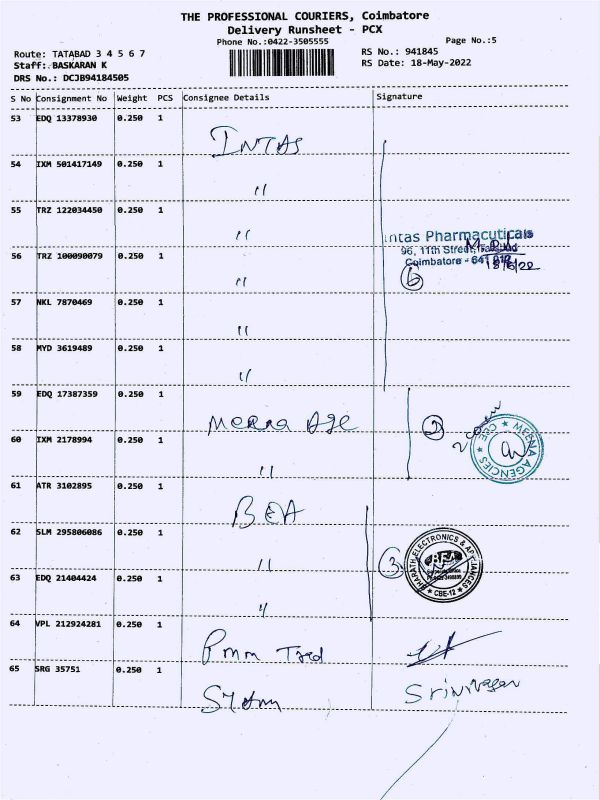 THE PROFESSIONAL COURIERS, Coimbatore
Delivery Runsheet - PCX
Phone No.:0422-3505555
Page No.:5
Route: TATABAD 3 4 5 6 7
RS No.: 941845
Staff: BASKARAN K
RS Date: 18-May-2022
DRS No.: DCJB94184505
S No Consignment No Weight PCS Consignee Details Signature
53 EDQ 13378930 0.250 1 INTAS
54 IXM 501417149 0.250 1 "
55 TRZ 122034450 0.250 1 "
intas Pharmacuticals
96, 11th Street,
Coimbatore - 641 012
56 TRZ 100090079 0.250 1 " 6
57 NKL 7870469 0.250 1 "
58 MYD 3619489 0.250 1 "
59 EDQ 17387359 0.250 1 Meena Age 2
MEENA AGENCIES ★ CBE ★
60 IXM 2178994 0.250 1 "
61 ATR 3102895 0.250 1 BEA
62 SLM 295806086 0.250 1 " 3
BHARATH ELECTRONICS & APPLIANCES
BEA
★ CBE-12 ★
63 EDQ 21404424 0.250 1 "
64 VPL 212924281 0.250 1 Pmm Tred
65 SRG 35751 0.250 1 Srinivasan